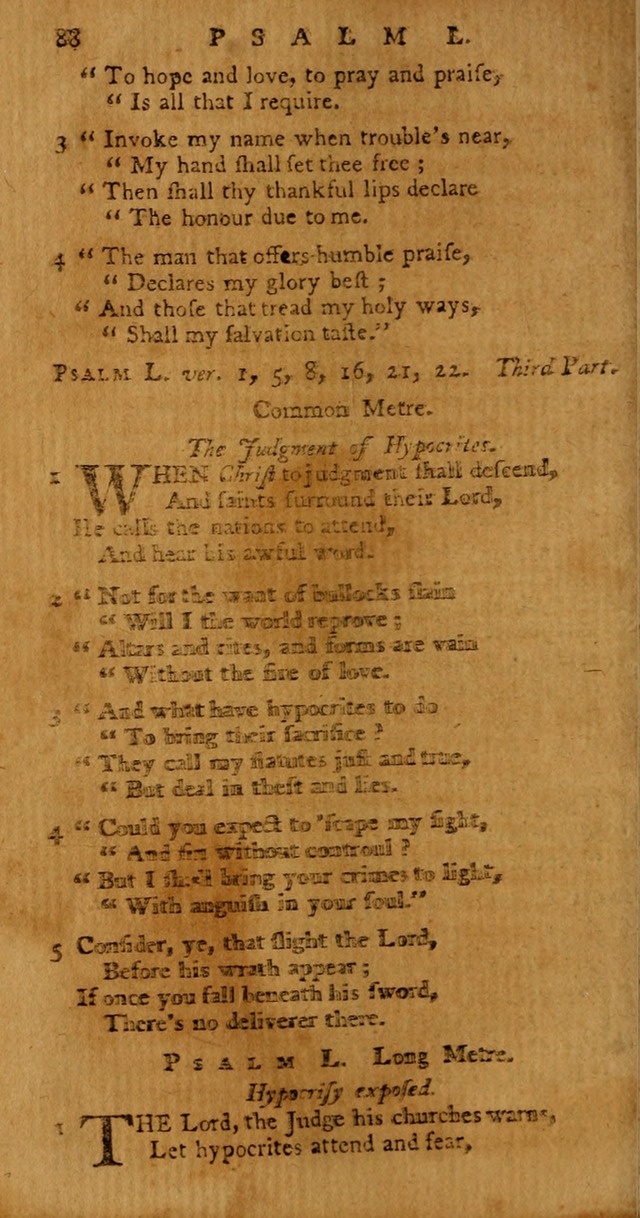 88 PSALM L.
“ To hope and love, to pray and praiſe,
“ Is all that I require.
3 “ Invoke my name when trouble's near,
“ My hand ſhall ſet thee free ;
“ Then ſhall thy thankful lips declare
“ The honour due to me.
4 “ The man that offers humble praiſe,
“ Declares my glory beſt ;
“ And thoſe that tread my holy ways,
“ Shall my ſalvation taſte.”
PSALM L. ver. 1, 5, 8, 16, 21, 22. Third Part.
Common Metre.
The Judgment of Hypocrites.
1 WHEN Chriſt to judgment ſhall deſcend,
And ſaints ſurround their Lord,
He calls the nations to attend,
And hear his awful word.
2 “ Not for the want of bullocks ſlain
“ Will I the world reprove ;
“ Altars and rites, and forms are vain
“ Without the fire of love.
3 “ And what have hypocrites to do
“ To bring their ſacrifice ?
“ They call my ſtatutes juſt and true,
“ But deal in theft and lies.
4 “ Could you expect to 'ſcape my ſight,
“ And ſin without controul ?
“ But I ſhall bring your crimes to light,
“ With anguiſh in your ſoul.”
5 Conſider, ye, that ſlight the Lord,
Before his wrath appear ;
If once you fall beneath his ſword,
There's no deliverer there.
PSALM L. Long Metre.
Hypocriſy expoſed.
1 THE Lord, the Judge his churches warns,
Let hypocrites attend and fear,